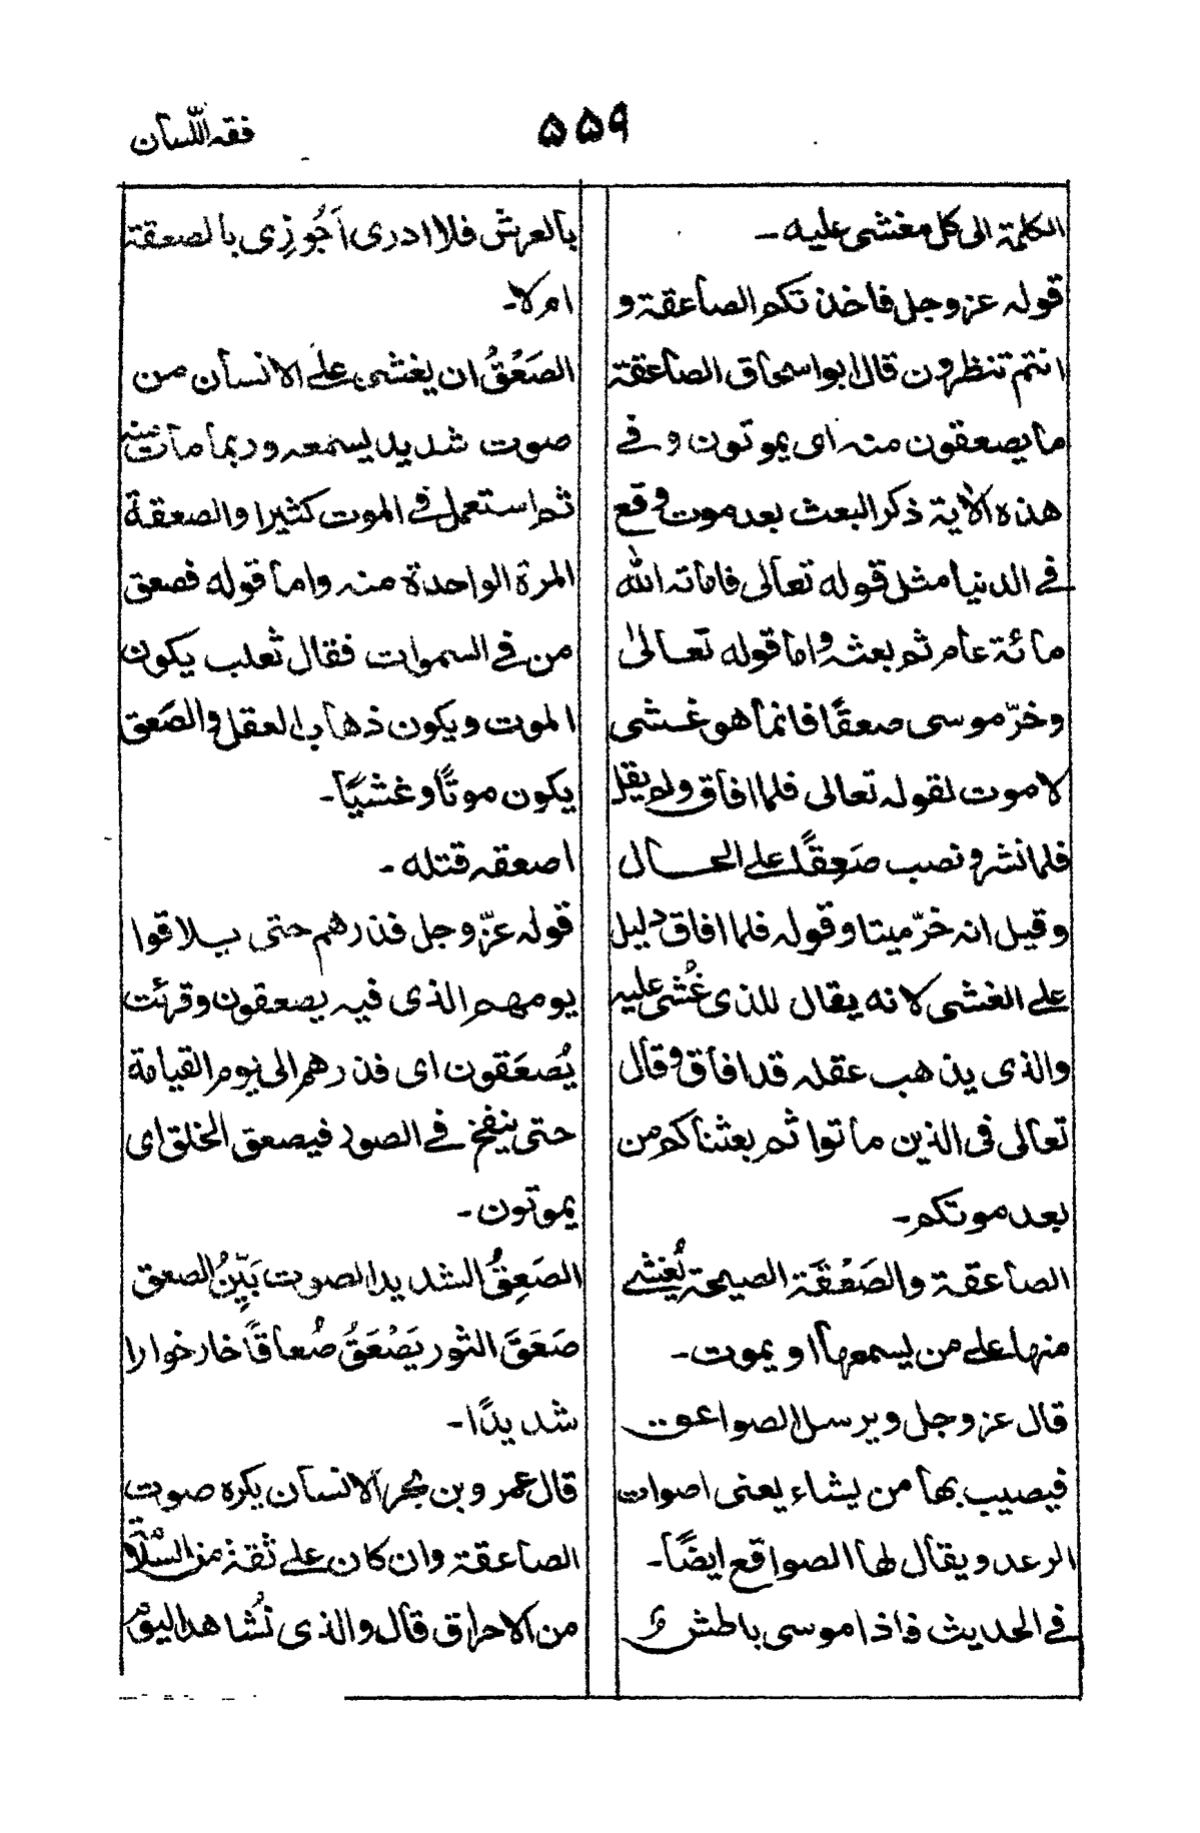 فقه اللسان
۵۵۹
الكلمة الى كل مغشى عليه -
قوله عز وجل فاخذتكم الصاعقة و
انتم تنظرون قال ابواسحاق الصاعقة
ما يصعقون منه اى يموتون و في
هذه الآية ذكر البعث بعد موت وقع
في الدنيا مثل قوله تعالى فاماته الله
مائة عام ثم بعثه واما قوله تعالىٰ
وخرّ موسى صعقًا فانما هو غشى
لا موت لقوله تعالى فلما افاق ولم يقل
فلما نشر ونصب صَعِقًا على الحال
وقيل انه خرّ ميتا وقوله فلما افاق دليل
على الغشى لانه يقال للذى غُشى عليه
والذى يذهب عقله قد افاق وقال
تعالى فى الذين ماتوا ثم بعثناكم من
بعد موتكم -
الصاعقة والصَعْقَة الصيحة يُغشى
منها على من يسمعها او يموت -
قال عز وجل ويرسل الصواعق
فيصيب بها من يشاء يعنى اصوات
الرعد ويقال لها الصواقع ايضًا -
في الحديث فاذا موسى باطش
بالعرش فلا ادرى اَجُوزِى بالصعقة
ام لا -
الصَعْقُ ان يغشى على الانسان من
صوت شديد يسمعه وربما مات منه
ثم استعمل في الموت كثيرا والصعقة
المرة الواحدة منه واما قوله فصعق
من في السموات فقال ثعلب يكون
الموت ويكون ذهاب العقل والصَعق
يكون موتًا وغشيًا -
اصعقه قتله -
قوله عزّ وجل فذرهم حتى يلاقوا
يومهم الذى فيه يصعقون وقرئت
يُصْعَقون اى فذرهم الى يوم القيامة
حتى ينفخ في الصور فيصعق الخلق اى
يموتون -
الصَعِقُ الشديد الصوت بَيِّنُ الصعق
صَعَقَ الثور يَصْعَقُ صُعاقًا خار خوارا
شديدًا -
قال عمرو بن بحر الانسان يكره صوت
الصاعقة وان كان على ثقة من السلامة
من الاحراق قال والذى نُشاهد اليوم